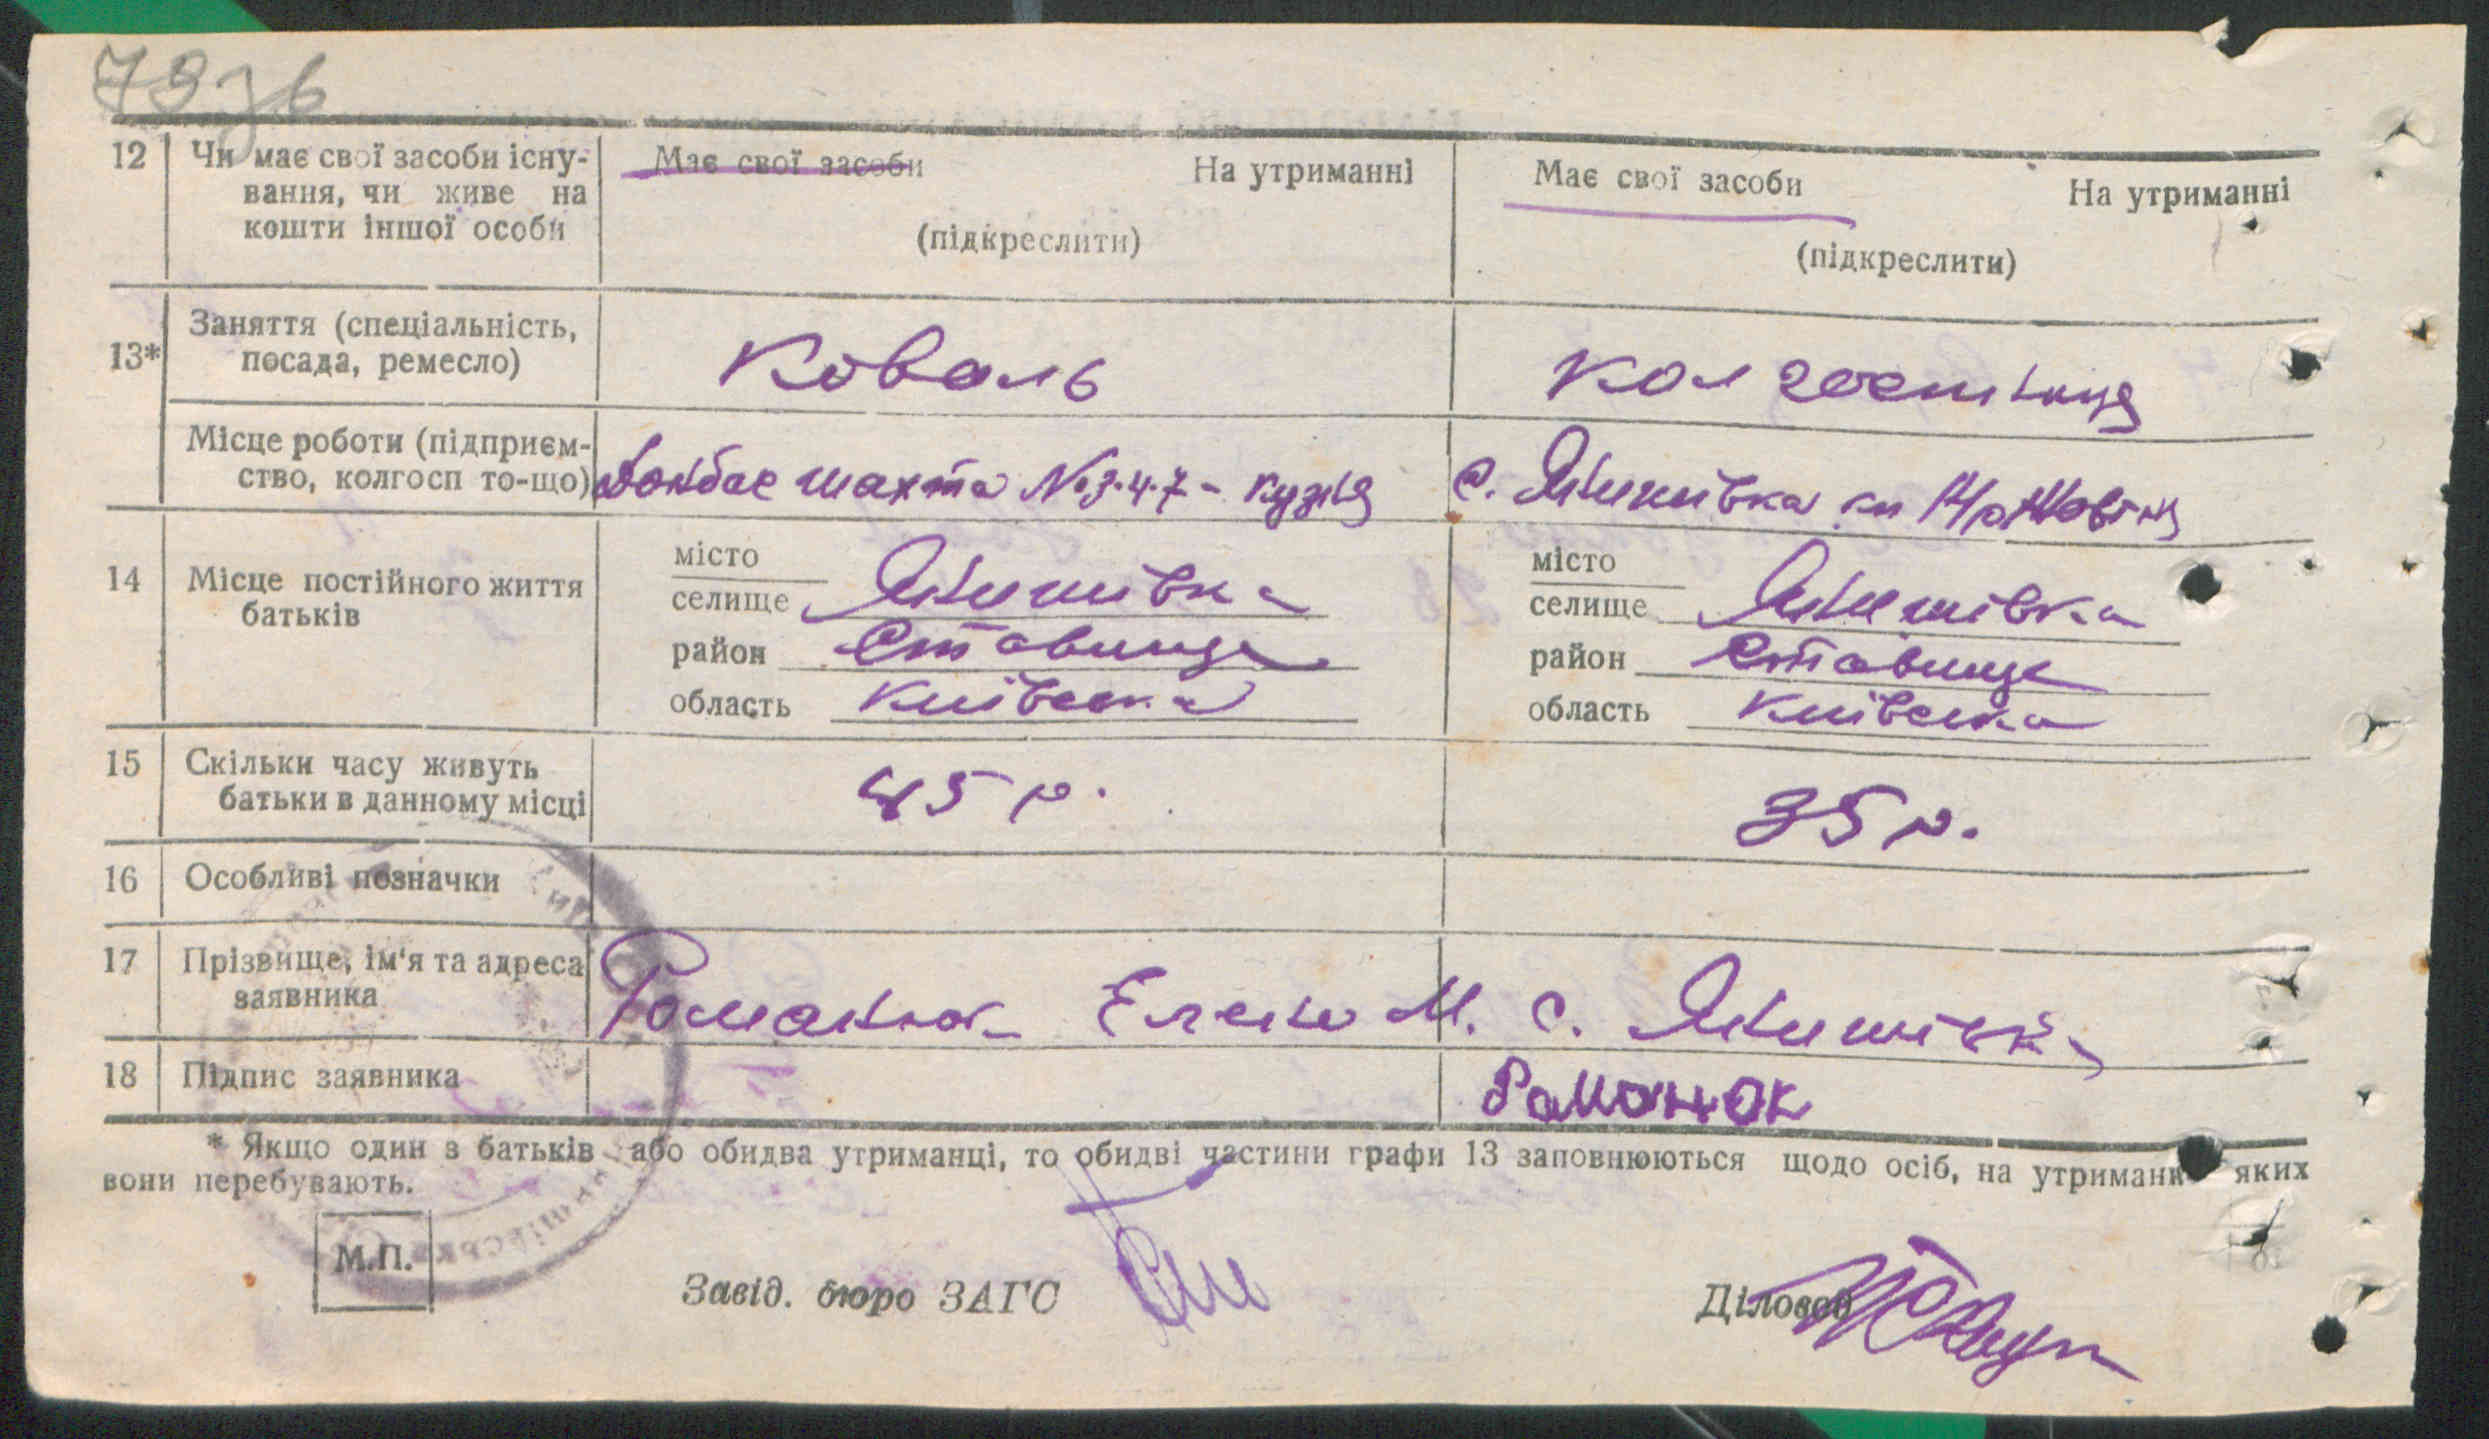 79зв
12 Чи має свої засоби існу- Має свої засоби На утриманні Має свої засоби На утриманні
вання, чи живе на
кошти іншої особи (підкреслити) (підкреслити)
13* Заняття (спеціальність,
посада, ремесло) Коваль Колгоспниця
Місце роботи (підприєм-
ство, колгосп то-що) Донбас шахта №3.4.7- кузня с. Янишівка
14 Місце постійного життя
батьків
місто місто
селище Янишівка селище Янишівка
район Ставище район Ставище
область Київска область Київска
15 Скільки часу живуть
батьки в данному місці 45 р. 35 р.
16 Особливі позначки
17 Прізвище, ім'я та адреса
заявника Романюк Елена М. с. Янишівка
18 Підпис заявника Романюк
* Якщо один з батьків або обидва утриманці, то обидві частини графи 13 заповнюються щодо осіб, на утриманні яких
вони перебувають.
М.П.
Завід. бюро ЗАГС Діловод